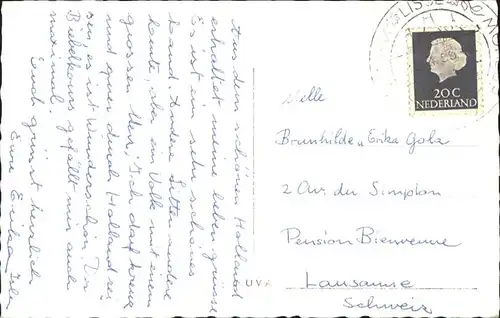 Aus dem schönen Holland
erhaltet meine lieben grüsse
Es ist ein sehr schönes
Land. Andere Sitten andere
Leute, aber ein Volk mit einem
grossen Herz. Ich darf kreuz
und quer durch Holland
Es ist Wunderschön. Die
gefällt mir auch
Euch grüsst herzlich
Eure Erika
VLISSINGEN
20 C
NEDERLAND
Brunhilde u Erika Gola
2 Av. du Simplon
Pension Bienvenue
Lausanne
Schweiz
UVA